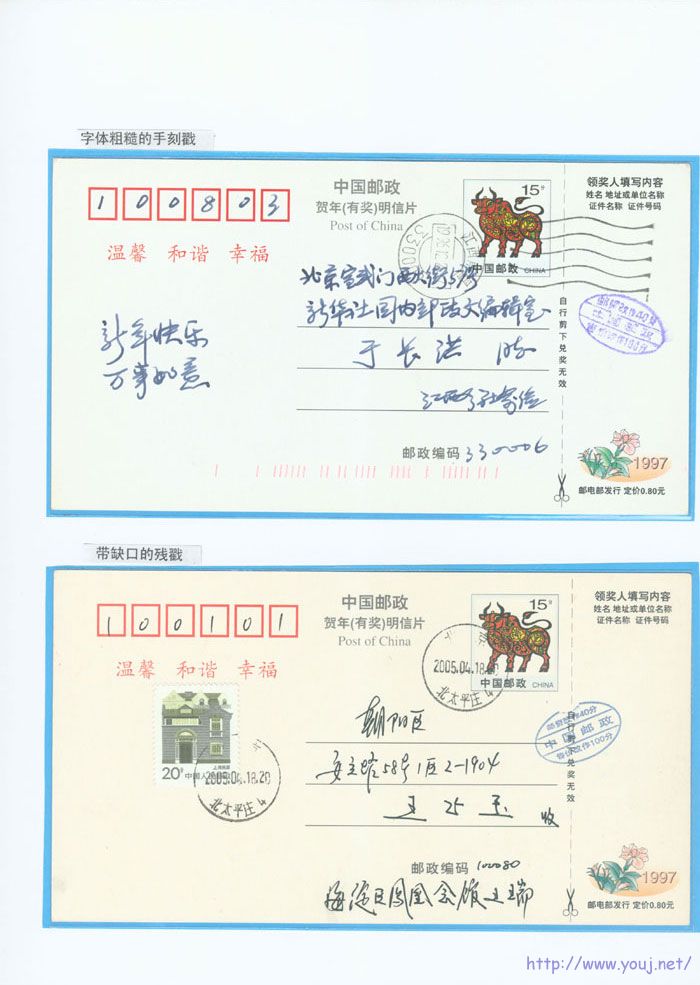 字体粗糙的手刻戳
100803
中国邮政
贺年(有奖)明信片
Post of China
15分
中国邮政 CHINA
领奖人填写内容
姓名 地址或单位名称
证件名称 证件号码
温馨 和谐 幸福
北京宣武门西大街57号
新华社国内部政文编辑室
于长洪
新年快乐
万事如意
自行剪下兑奖无效
邮政编码 330006
1997
邮电部发行 定价0.80元
带缺口的残戳
100101
中国邮政
贺年(有奖)明信片
Post of China
15分
中国邮政 CHINA
领奖人填写内容
姓名 地址或单位名称
证件名称 证件号码
温馨 和谐 幸福
2005.04.18.20
北太平庄 4
上海民居
20分
2005.04.18.20
北太平庄 4
朝阳区
58号1区2-1904
收
邮资改作40分
中国邮政
售价改作100分
自行剪下兑奖无效
邮政编码 100080
1997
邮电部发行 定价0.80元
http://www.youj.net/